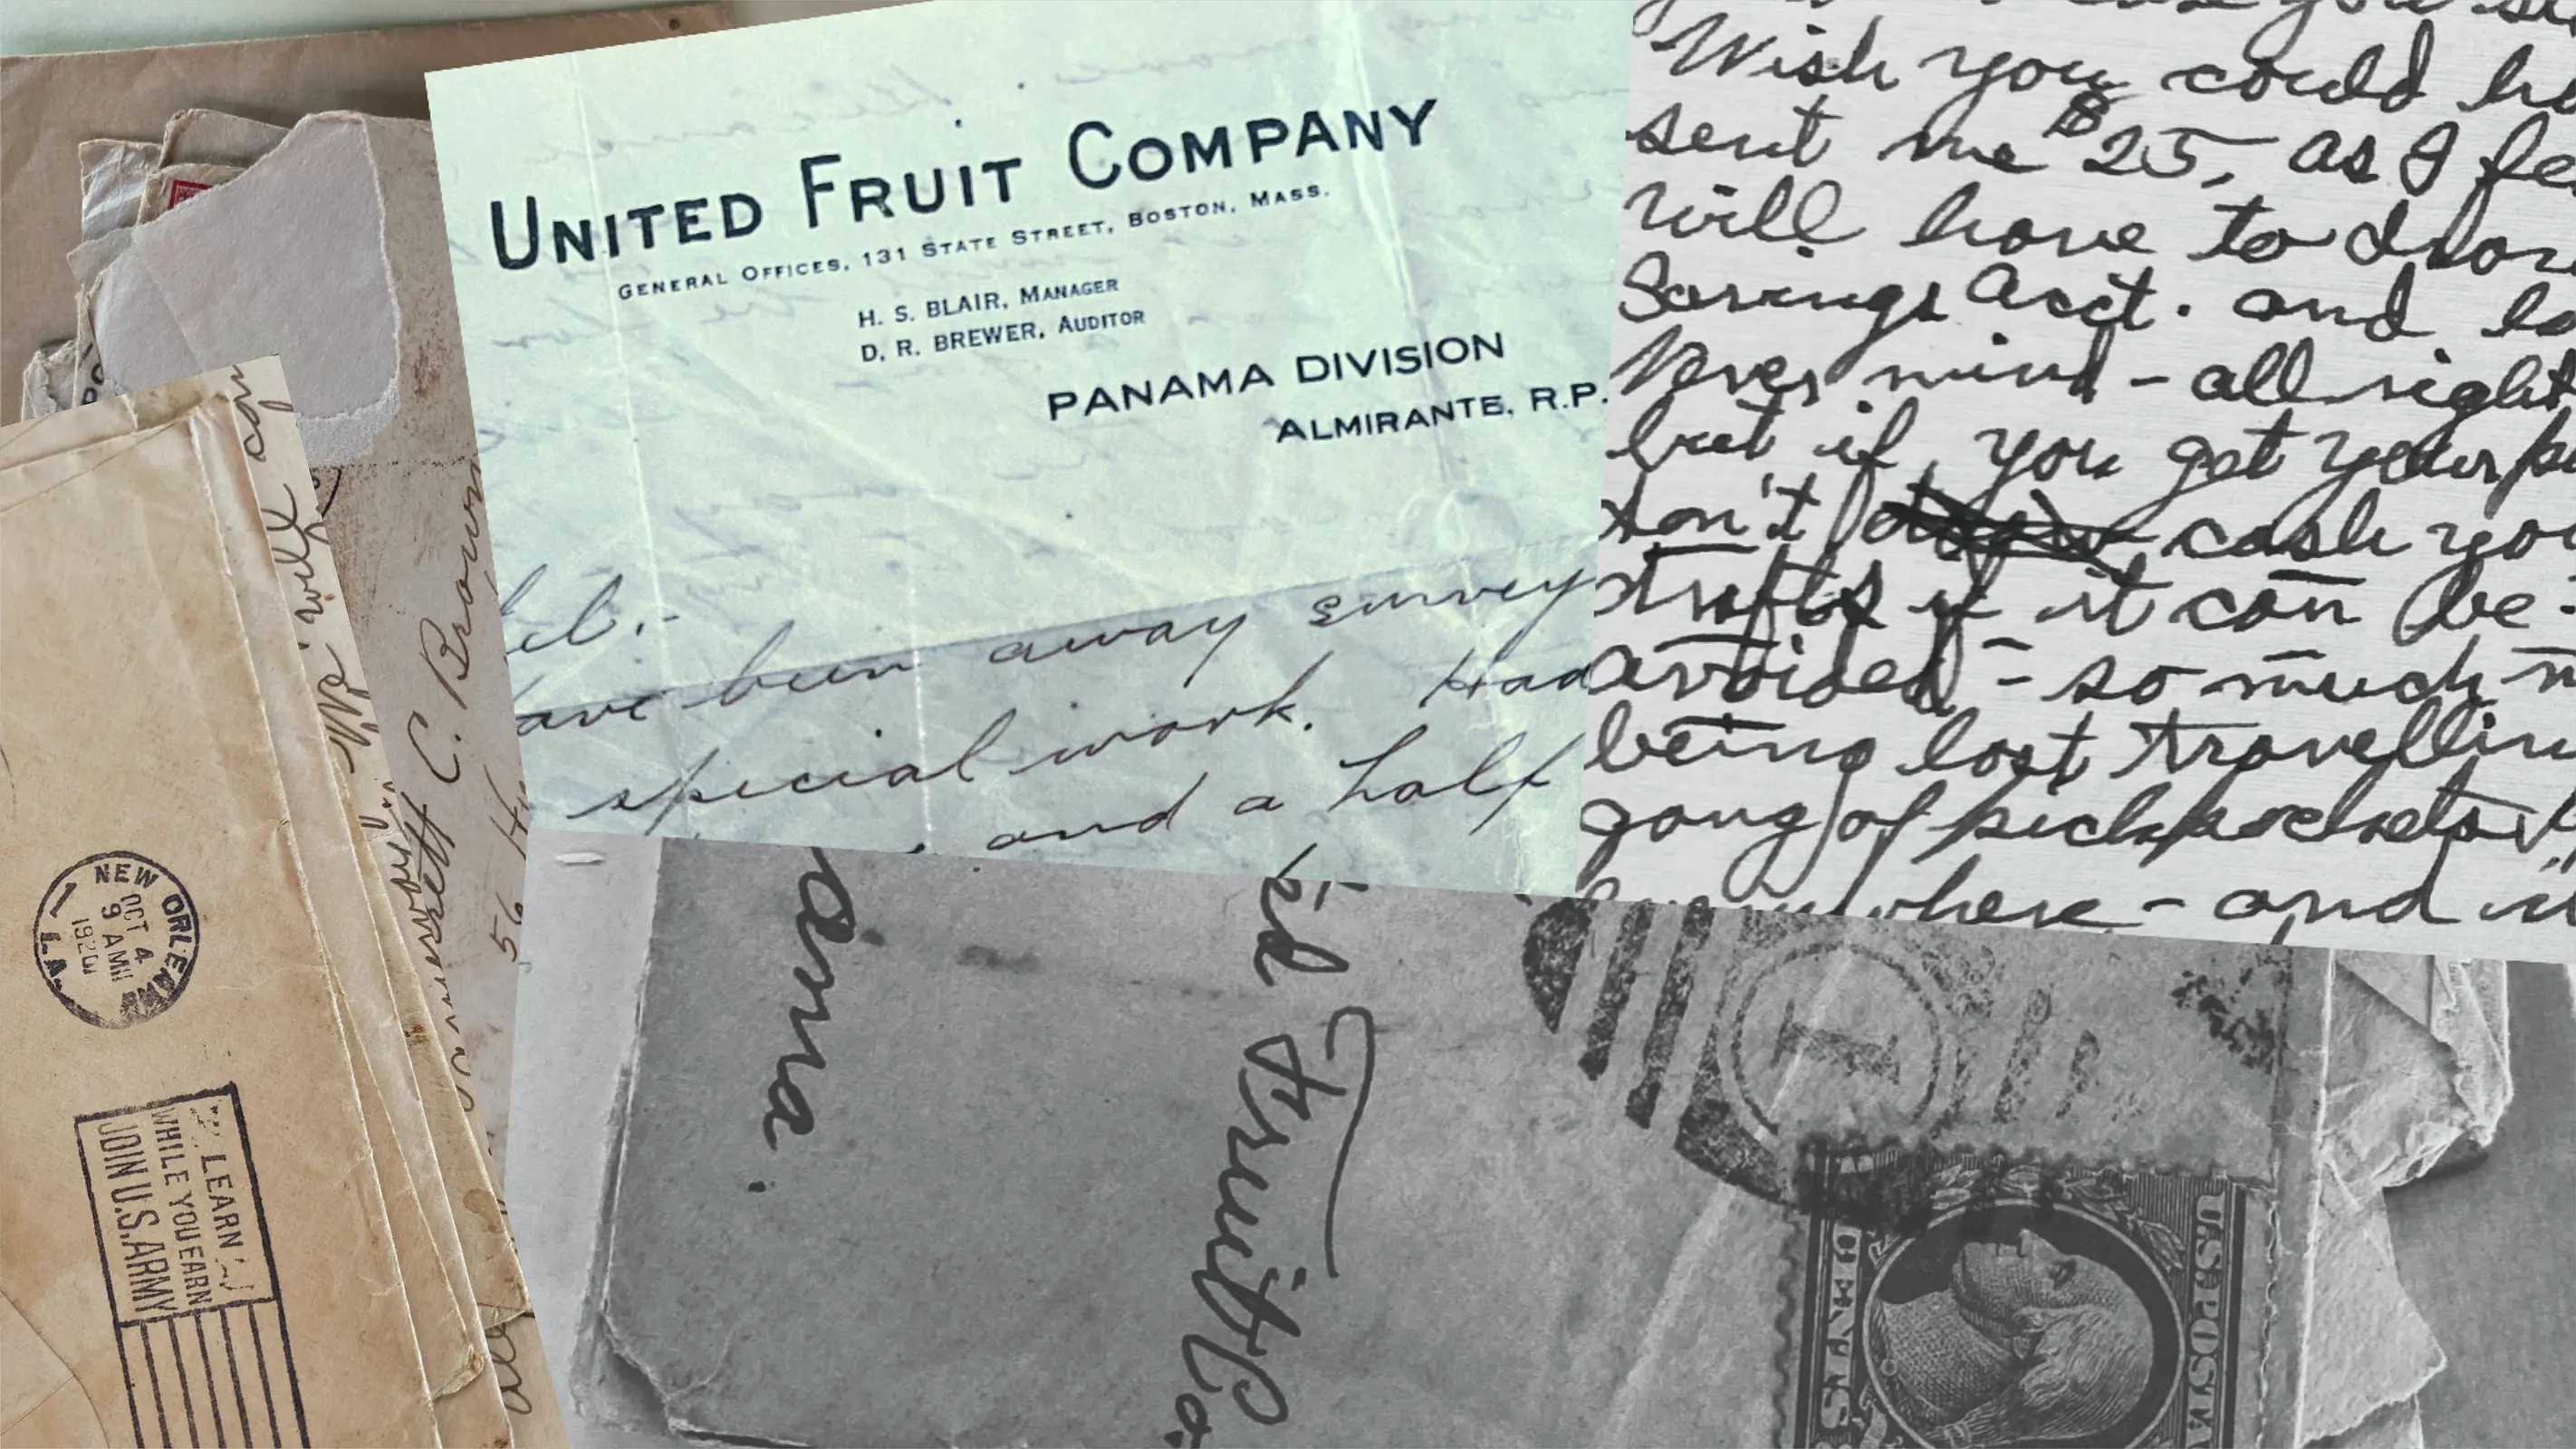 UNITED FRUIT COMPANY
GENERAL OFFICES, 131 STATE STREET, BOSTON, MASS.
H. S. BLAIR, MANAGER
D. R. BREWER, AUDITOR
PANAMA DIVISION
ALMIRANTE, R.P.
el.-
ave been away survey
special work. Had
and a half
Wish you could ha
sent me $25, as I fe
will have to draw
Savings Acct. and
Never mind - all right
but if you get your
don't cash you
drafts if it can be
avoided - so much m
being lost travelling
gang of pickpockets
where - and
We will
C. Brown
56
NEW ORLE
OCT 4
9 AM
1920
1 LA.
LEARN
WHILE YOU EARN
JOIN U.S. ARMY
ama.
ed Fruit Co.
U.S. POSTA